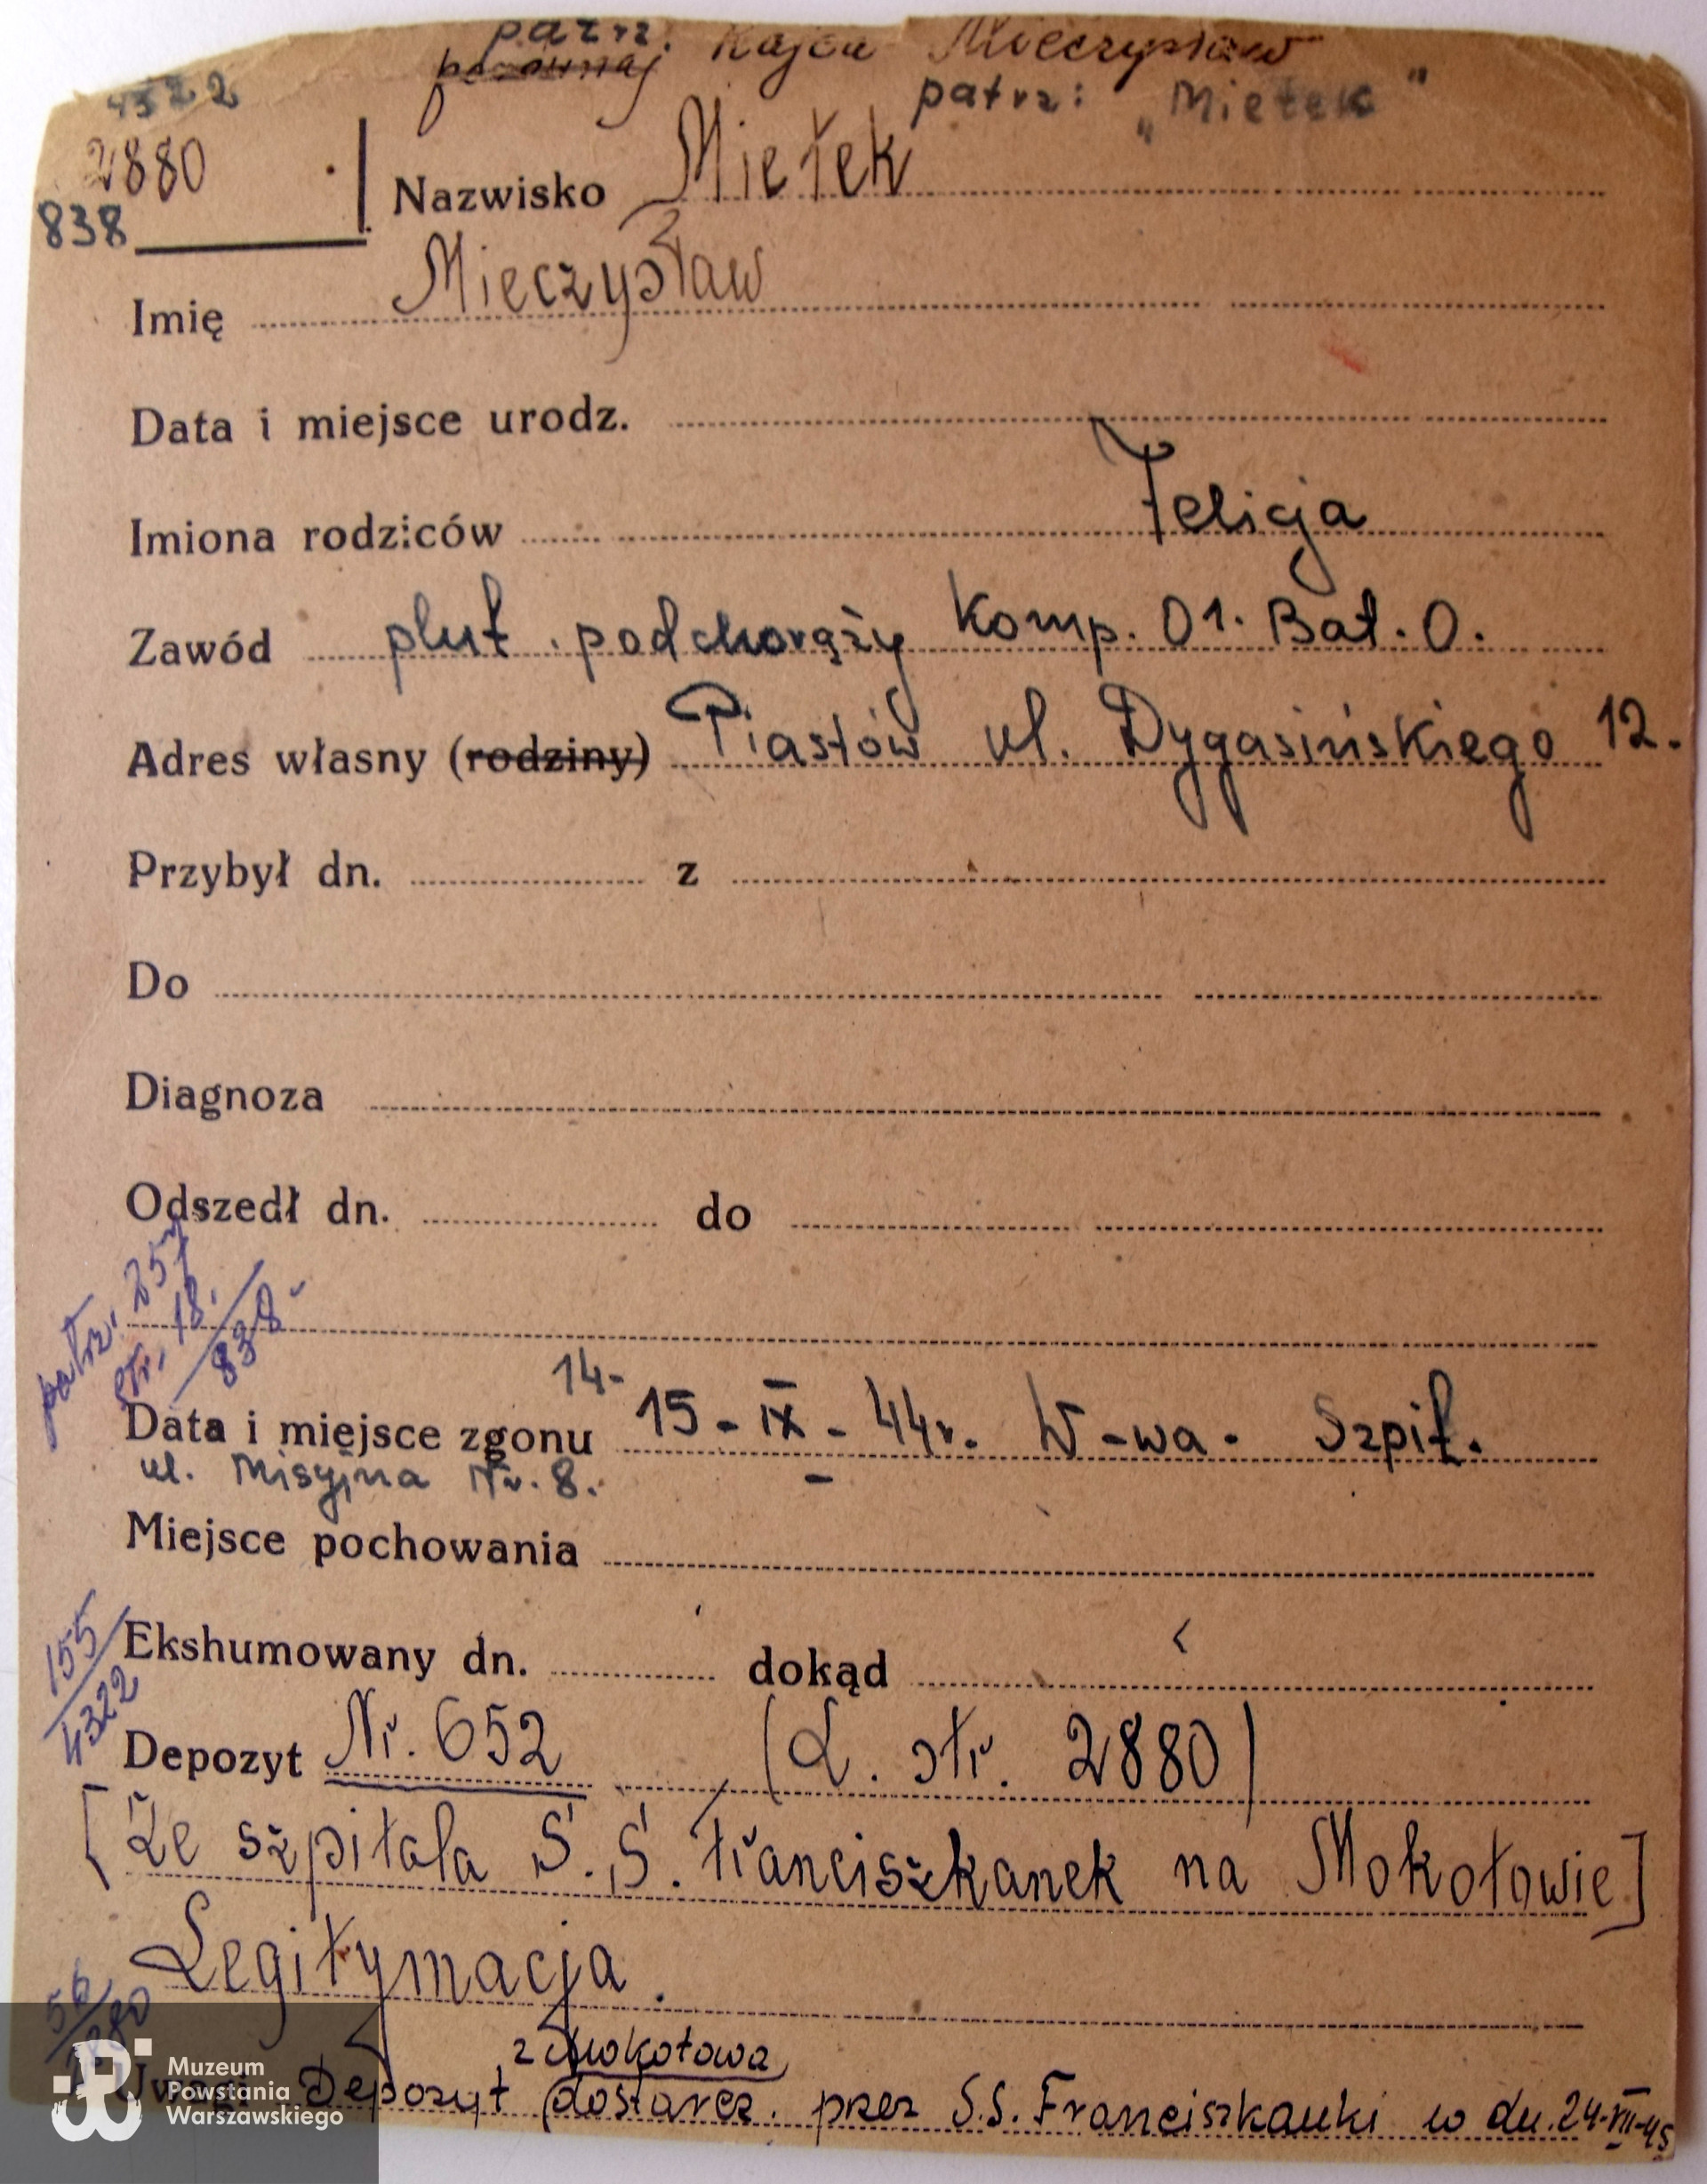 patrz. Kajca Mieczysław
porównaj
4322 patrz: „Mietek"
2880
838 Nazwisko Mietek
Imię Mieczysław
Data i miejsce urodz.
Imiona rodziców Felicja
Zawód plut. podchorąży Komp. O1. Bat. O.
Adres własny (rodziny) Piastów ul. Dygasińskiego 12.
Przybył dn. z
Do
Diagnoza
Odszedł dn. do
patrz. 257
str. 18.
838
14-
Data i miejsce zgonu 15-IX-44r. W-wa. Szpit.
ul. Misyjna Nr. 8.
Miejsce pochowania
155
4322
Ekshumowany dn. dokąd
Depozyt Nr. 652 (L. str. 2880)
[Ze szpitala S. S. Franciszkanek na Mokotowie]
Legitymacja.
56
2880
z Mokotowa
Uwagi Depozyt dostarcz. przez S.S. Franciszkanki w dn. 24-VII-45
Muzeum
Powstania
Warszawskiego